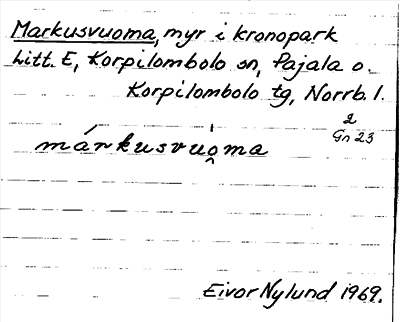 Markusvuoma, myr i kronopark
Litt. E, Korpilombolo sn, Pajala o.
Korpilombolo tg, Norrb. l.
2
Gn 23
márkusvu̯o̍ma
Eivor Nylund 1969.